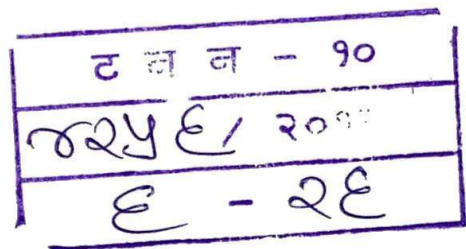 ट न न - १०
४२५६/ २०
६ - २६